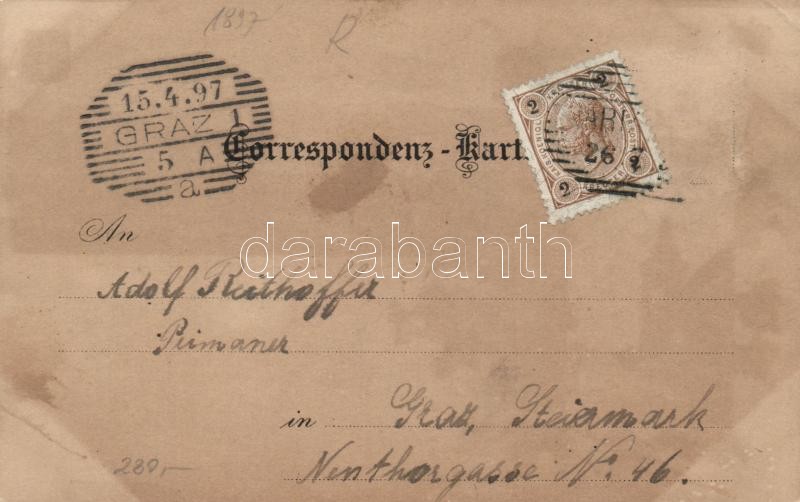 1897
R
15.4.97
GRAZ 1
5 A
a
Correspondenz-Kart
2
2
26
2
2
An
darabanth
Adolf Reithoffer
Primaner
in Graz, Steiermark
Nenthorgasse No. 46.
280,-